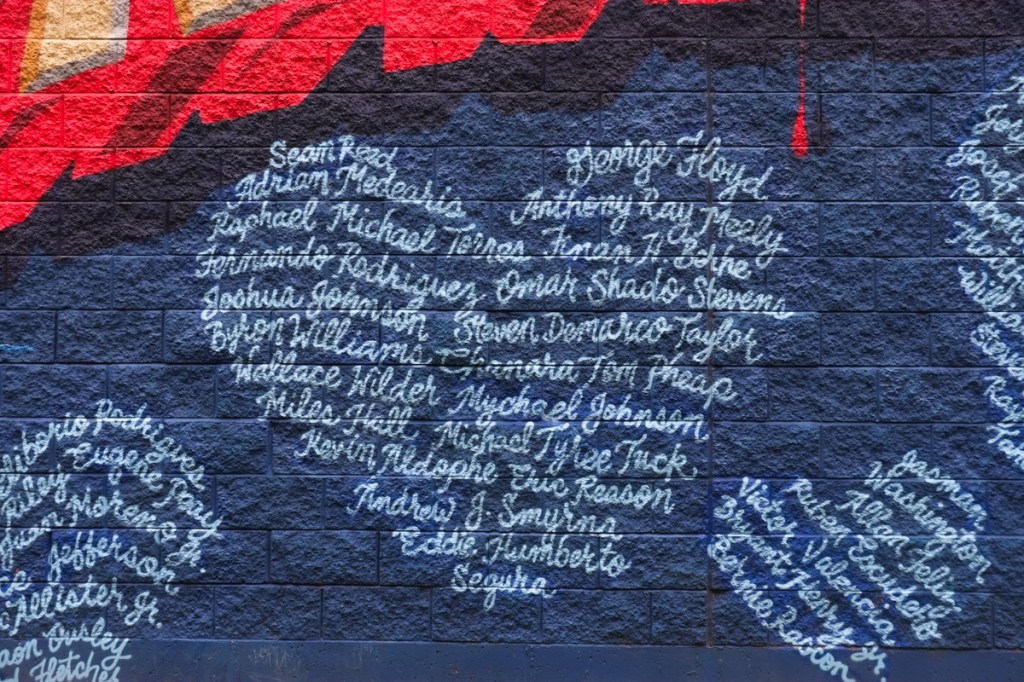 Sean Reed
Adrian Medearis
Raphael Michael Torres
Fernando Rodriguez
Joshua Johnson
Byron Williams
Wallace Wilder
Miles Hall
Kevin Aldophe
Andrew J. Smyrna
Eddie Humberto
Segura
George Floyd
Anthony Ray Meely
Finan H. Berhe
Omar Shado Stevens
Steven Demarco Taylor
Chanara Tom Pheap
Mychael Johnson
Michael Tylee Tuck
Eric Reason
Rodrigues
Eugene
Riley
Juan Moreno Jr.
Jefferson
Allister Jr.
Ousley
Fletcher
Jasmen
Washington
Allan Felix
Ruben Escudero
Victor Valencia
Bryant Henry Jr.
Bernie Reston